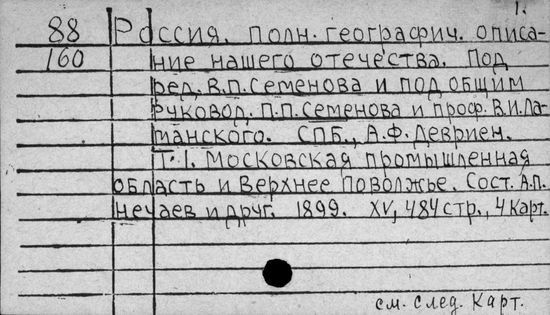 1.
88 Россия. Полн. географич. описа-
160 ние нашего отечества. Под
ред. В.П. Семенова и под общим
руковод. П.П. Семенова и проф. В.И. Ла-
манского. СПБ., А.Ф. Девриен.
Т. 1. Московская промышленная
область и Верхнее Поволжье. Сост. А.П.
Нечаев и друг. 1899. XV, 484 стр., 4 карт.
см. след. Карт.